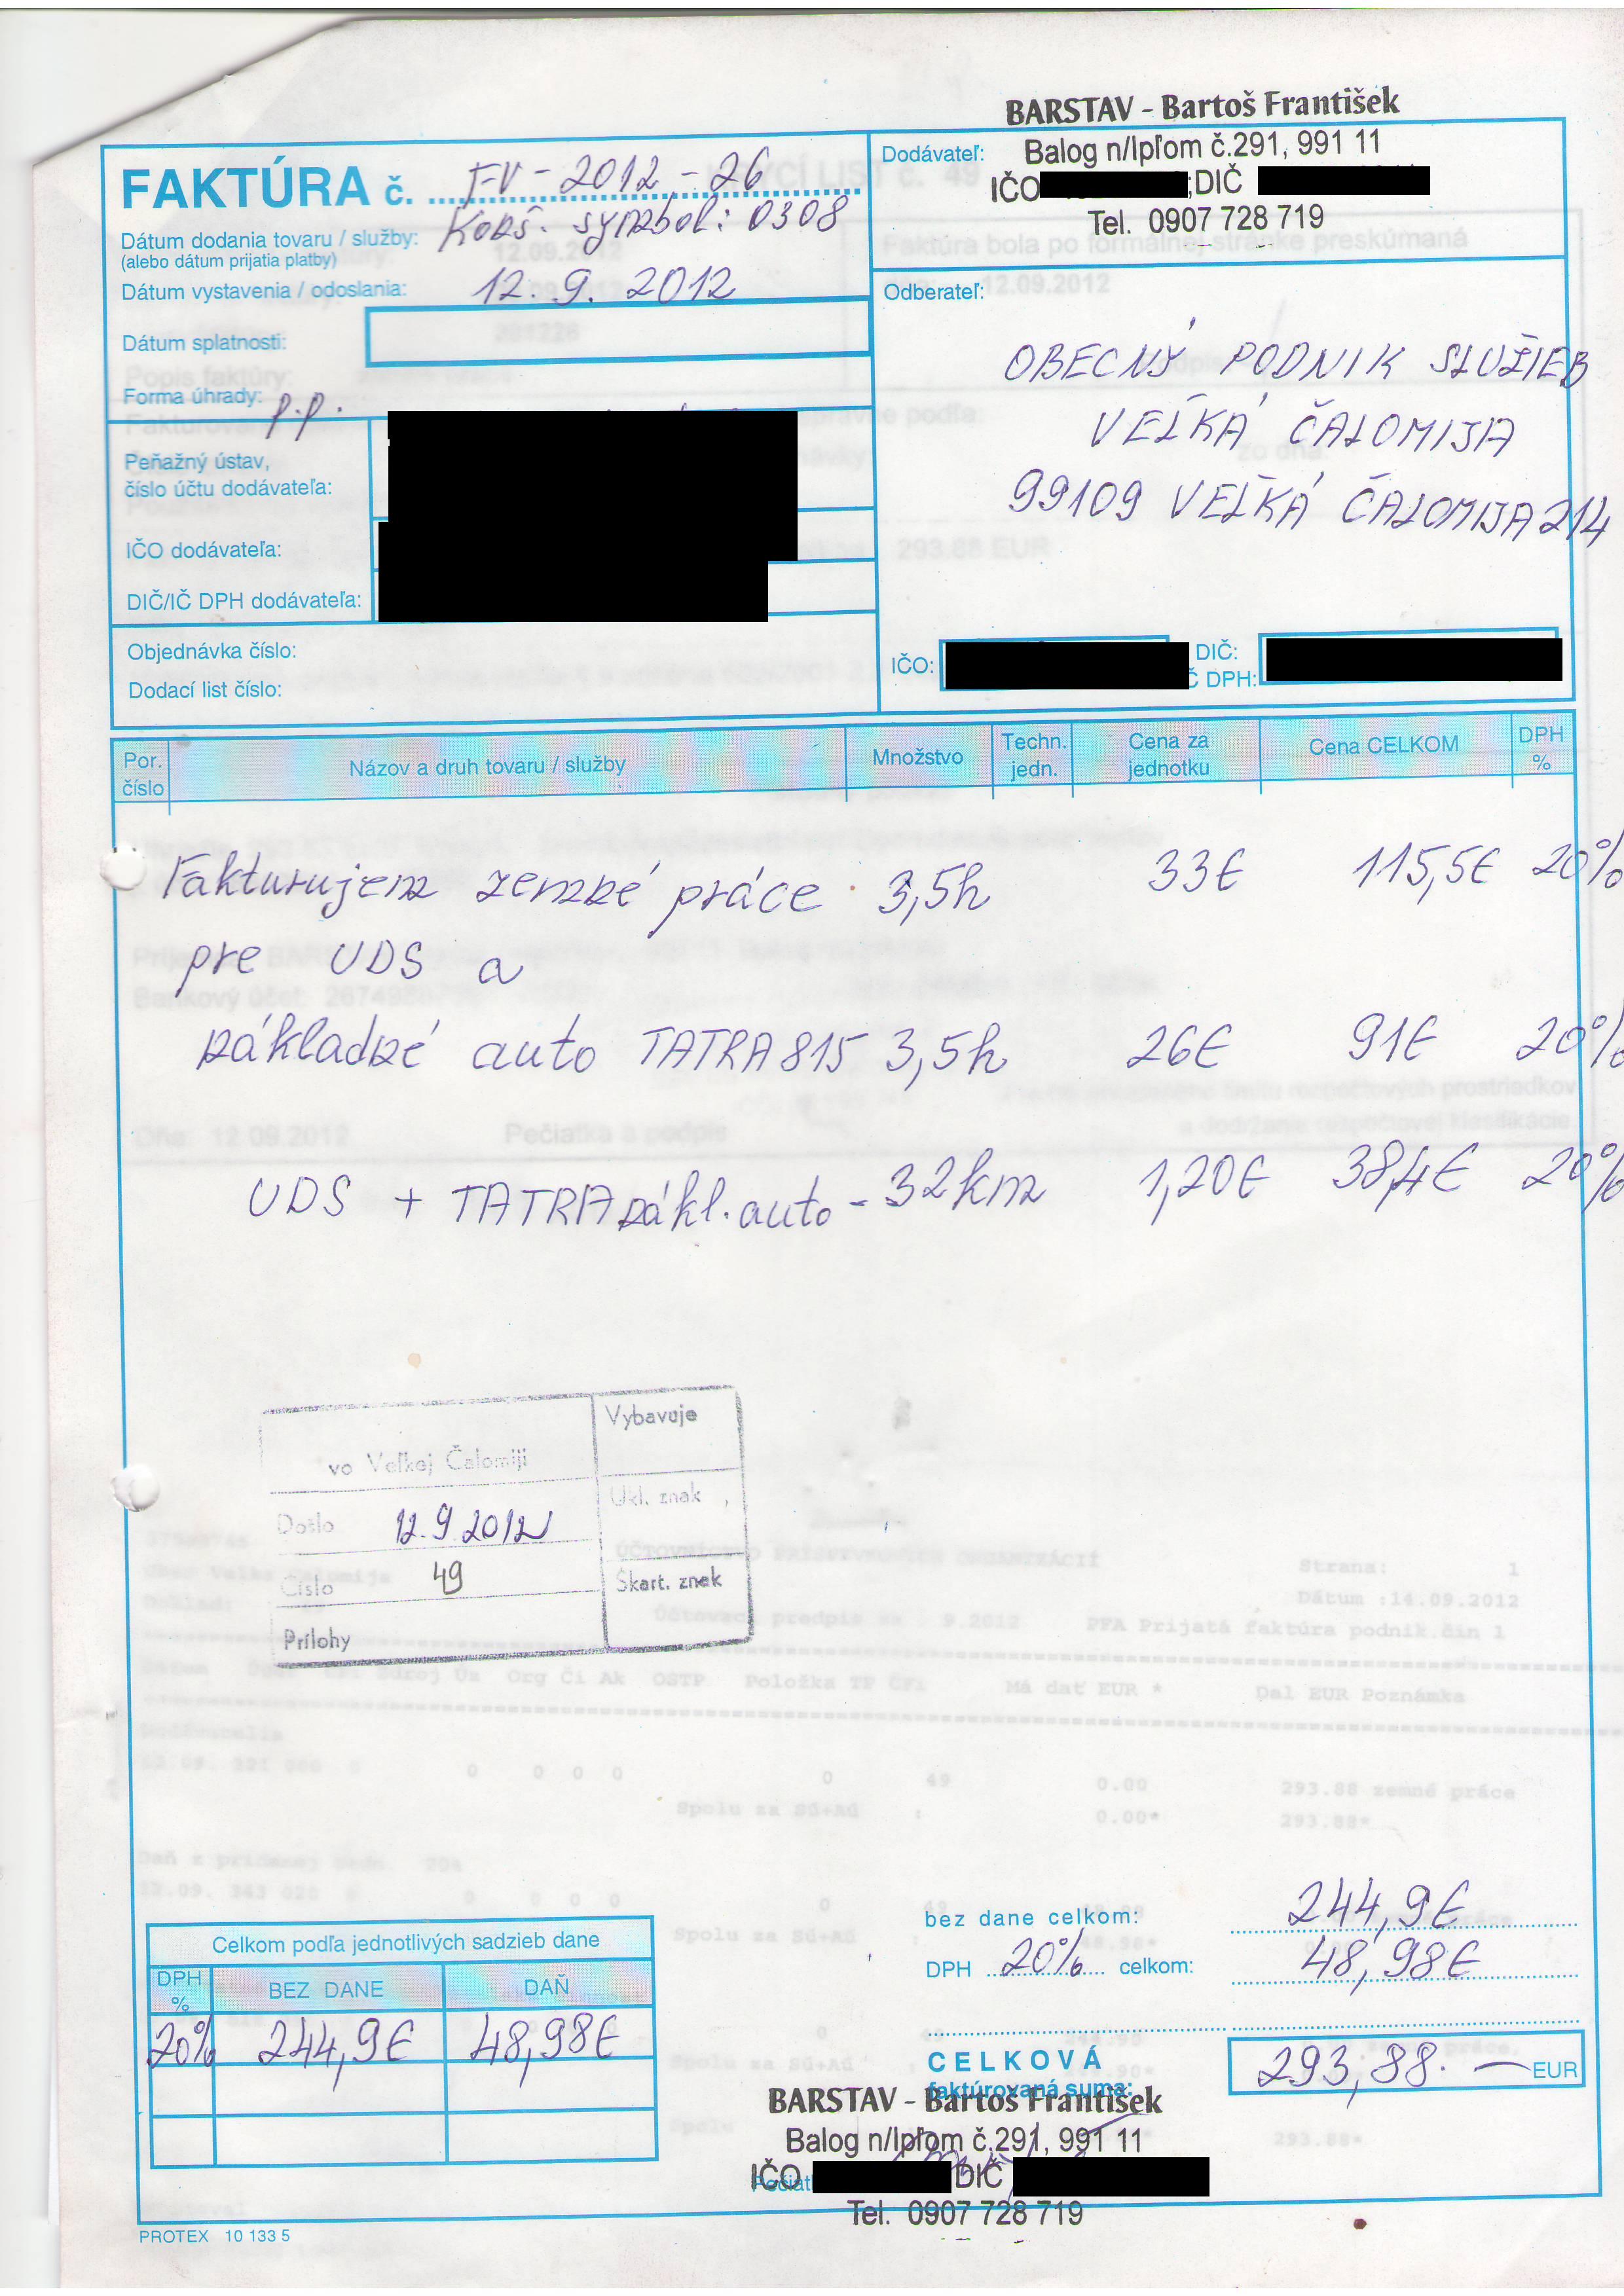 BARSTAV - Bartoš František
Dodávateľ: Balog n/Ipľom č.291, 991 11
IČO ;DIČ
Tel. 0907 728 719
FAKTÚRA č. FV - 2012 - 26
Konš. symbol: 0308
Dátum dodania tovaru / služby:
(alebo dátum prijatia platby)
Dátum vystavenia / odoslania: 12. 9. 2012
Dátum splatnosti:
Forma úhrady: p.p.
Peňažný ústav,
číslo účtu dodávateľa:
IČO dodávateľa:
DIČ/IČ DPH dodávateľa:
Objednávka číslo:
Dodací list číslo:
Odberateľ:
OBECNÝ PODNIK SLUŽIEB
VEĽKÁ ČALOMIJA
99109 VEĽKÁ ČALOMIJA 214
IČO: DIČ:
Č DPH:
Por. číslo Názov a druh tovaru / služby Množstvo Techn. jedn. Cena za jednotku Cena CELKOM DPH %
Fakturujem zemné práce 3,5h 33€ 115,5€ 20%
pre UDS a
nákladné auto TATRA 815 3,5h 26€ 91€ 20%
UDS + TATRA nákl. auto - 32km 1,20€ 38,4€ 20%
vo Veľkej Čalomiji
Došlo 12.9.2012
Číslo 49
Prílohy
Vybavuje
Ukl. znak
Škart. znek
bez dane celkom: 244,9€
DPH 20% celkom: 48,98€
CELKOVÁ
faktúrovaná suma: 293,88.— EUR
Celkom podľa jednotlivých sadzieb dane
DPH % BEZ DANE DAŇ
20% 244,9€ 48,98€
BARSTAV - Bartoš František
Balog n/Ipľom č.291, 991 11
IČO DIČ
Tel. 0907 728 719
PROTEX 10 133 5